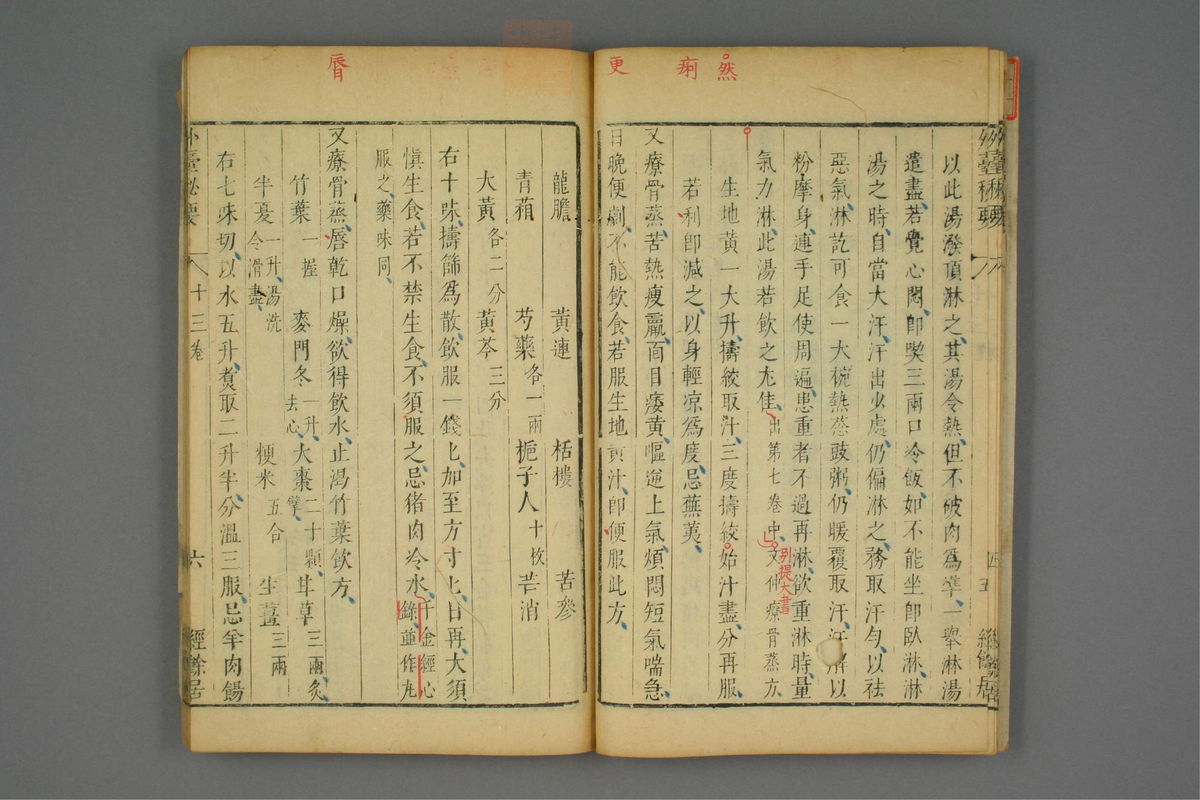 然
痢
更
以此湯潑頂淋之其湯令熱但不破肉為準一舉淋湯
遣盡若覺心悶即喫三兩口冷飯如不能坐即臥淋淋
湯之時自當大汗汗出少處仍偏淋之務取汗勻以祛
惡氣淋訖可食一大椀熱葱豉粥仍暖覆取汗汗解以
粉摩身連手足使周遍患重者不過再淋欲重淋時量
氣力淋此湯若飲之尤佳出第七卷中文仲療骨蒸方
別提大書
生地黃一大升擣絞取汁三度擣絞始汁盡分再服
若利即減之以身輕凉為度忌蕪荑
又療骨蒸苦熱瘦羸面目痿黃嘔逆上氣煩悶短氣喘急
日晚便劇不能飲食若服生地黃汁即便服此方
外臺祕要
四五
經餘居
脣
龍膽 黃連 栝樓 苦參
青葙 芍藥各一兩 梔子人十枚 芒消
大黃各二分 黃芩三分
右十味擣篩為散飲服一錢匕加至方寸匕日再大須
慎生食若不禁生食不須服之忌猪肉冷水千金經心
錄並作丸
服之藥味同
又療骨蒸唇乾口燥欲得飲水止渴竹葉飲方
竹葉一握 麥門冬一升去心 大棗二十顆擘 甘草三兩炙
半夏一升湯洗令滑盡 粳米五合 生薑三兩
右七味切以水五升煮取二升半分溫三服忌羊肉餳
外臺祕要 十三卷 六 經餘居